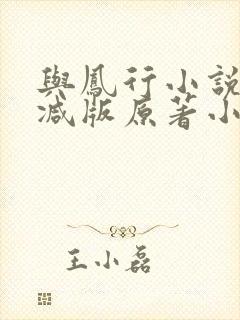 與鳳行小說
減版原著小
王小磊